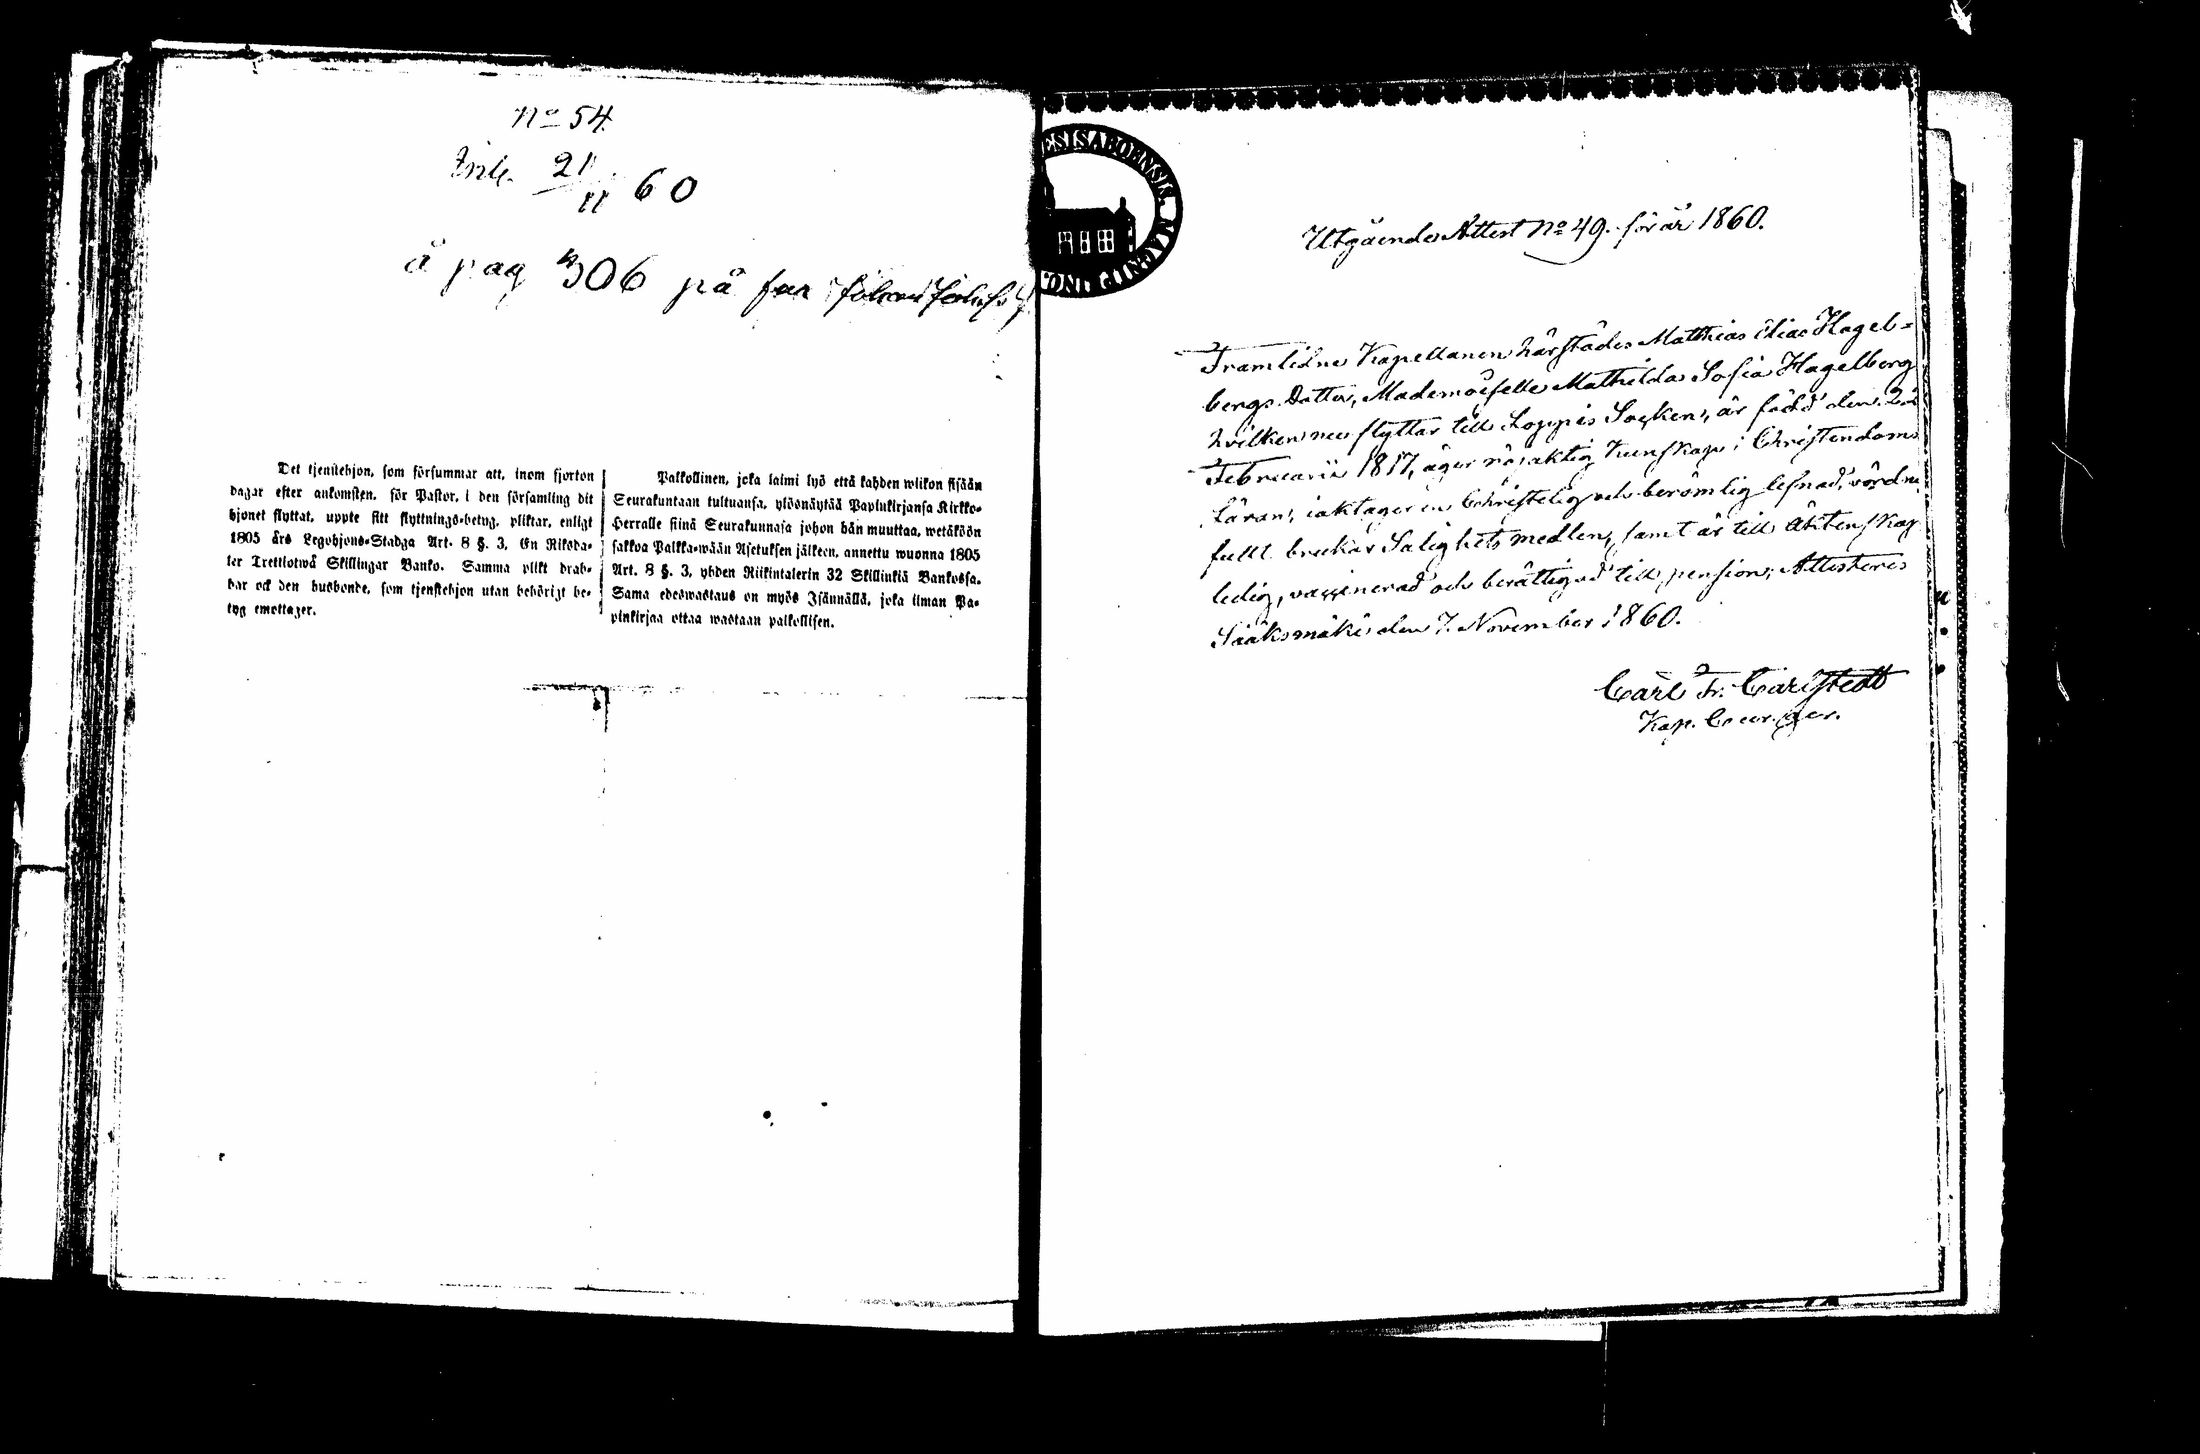 No 54.
Ink. 21/11 60
å pag 306 på
Det tjenstehjon, som försummar att, inom fjorton
dagar efter ankomsten, för Pastor, i den församling dit
hjonet flyttat, uppte sitt flyttnings-betyg, pliktar, enligt
1805 års Legohjons-Stadga Art. 8 §. 3, En Riksda-
ler Trettiotwå Skillingar Banko. Samma plikt drab-
bar ock den husbonde, som tjenstehjon utan behörigt be-
tyg emottager.
Palkollinen, joka laimi lyö että kahden wiikon sisään
Seurakuntaan tultuansa, ylösnäytää Papinkirjansa Kirkko-
Herralle siinä Seurakunnasa johon hän muuttaa, wetäköön
sakkoa Palkka-wään Asetuksen jälkeen, annettu wuonna 1805
Art. 8 §. 3, yhden Riikintalerin 32 Skillinkiä Bankossa.
Sama edeswastaus on myös Isännällä, joka ilman Pa-
pinkirjaa ottaa wastaan palkollisen.
ESISABOENSIS. MAGNIP INC.
Utgående Attest No 49. för år 1860.
Framlidne Kapellanen härstädes Matthias Elias Hagel-
bergs Dotter, Mademoiselle Mathilda Sofia Hagelberg
hvilken nu flyttar till Loppis Socken, är född den 22
Februarii 1817, äger nöjaktig kunskap i Christendoms
Läran, iaktager en Christelig och berömlig lefnad, vördn.
fullt brukar Salighets medlen, samt är till Äktenskap
ledig, vaccinerad och berättigad till pension; Attesteres
Sääksmäki den 7. November 1860.
Carl Fr. Carlstedt
Kap. Cur. ger.